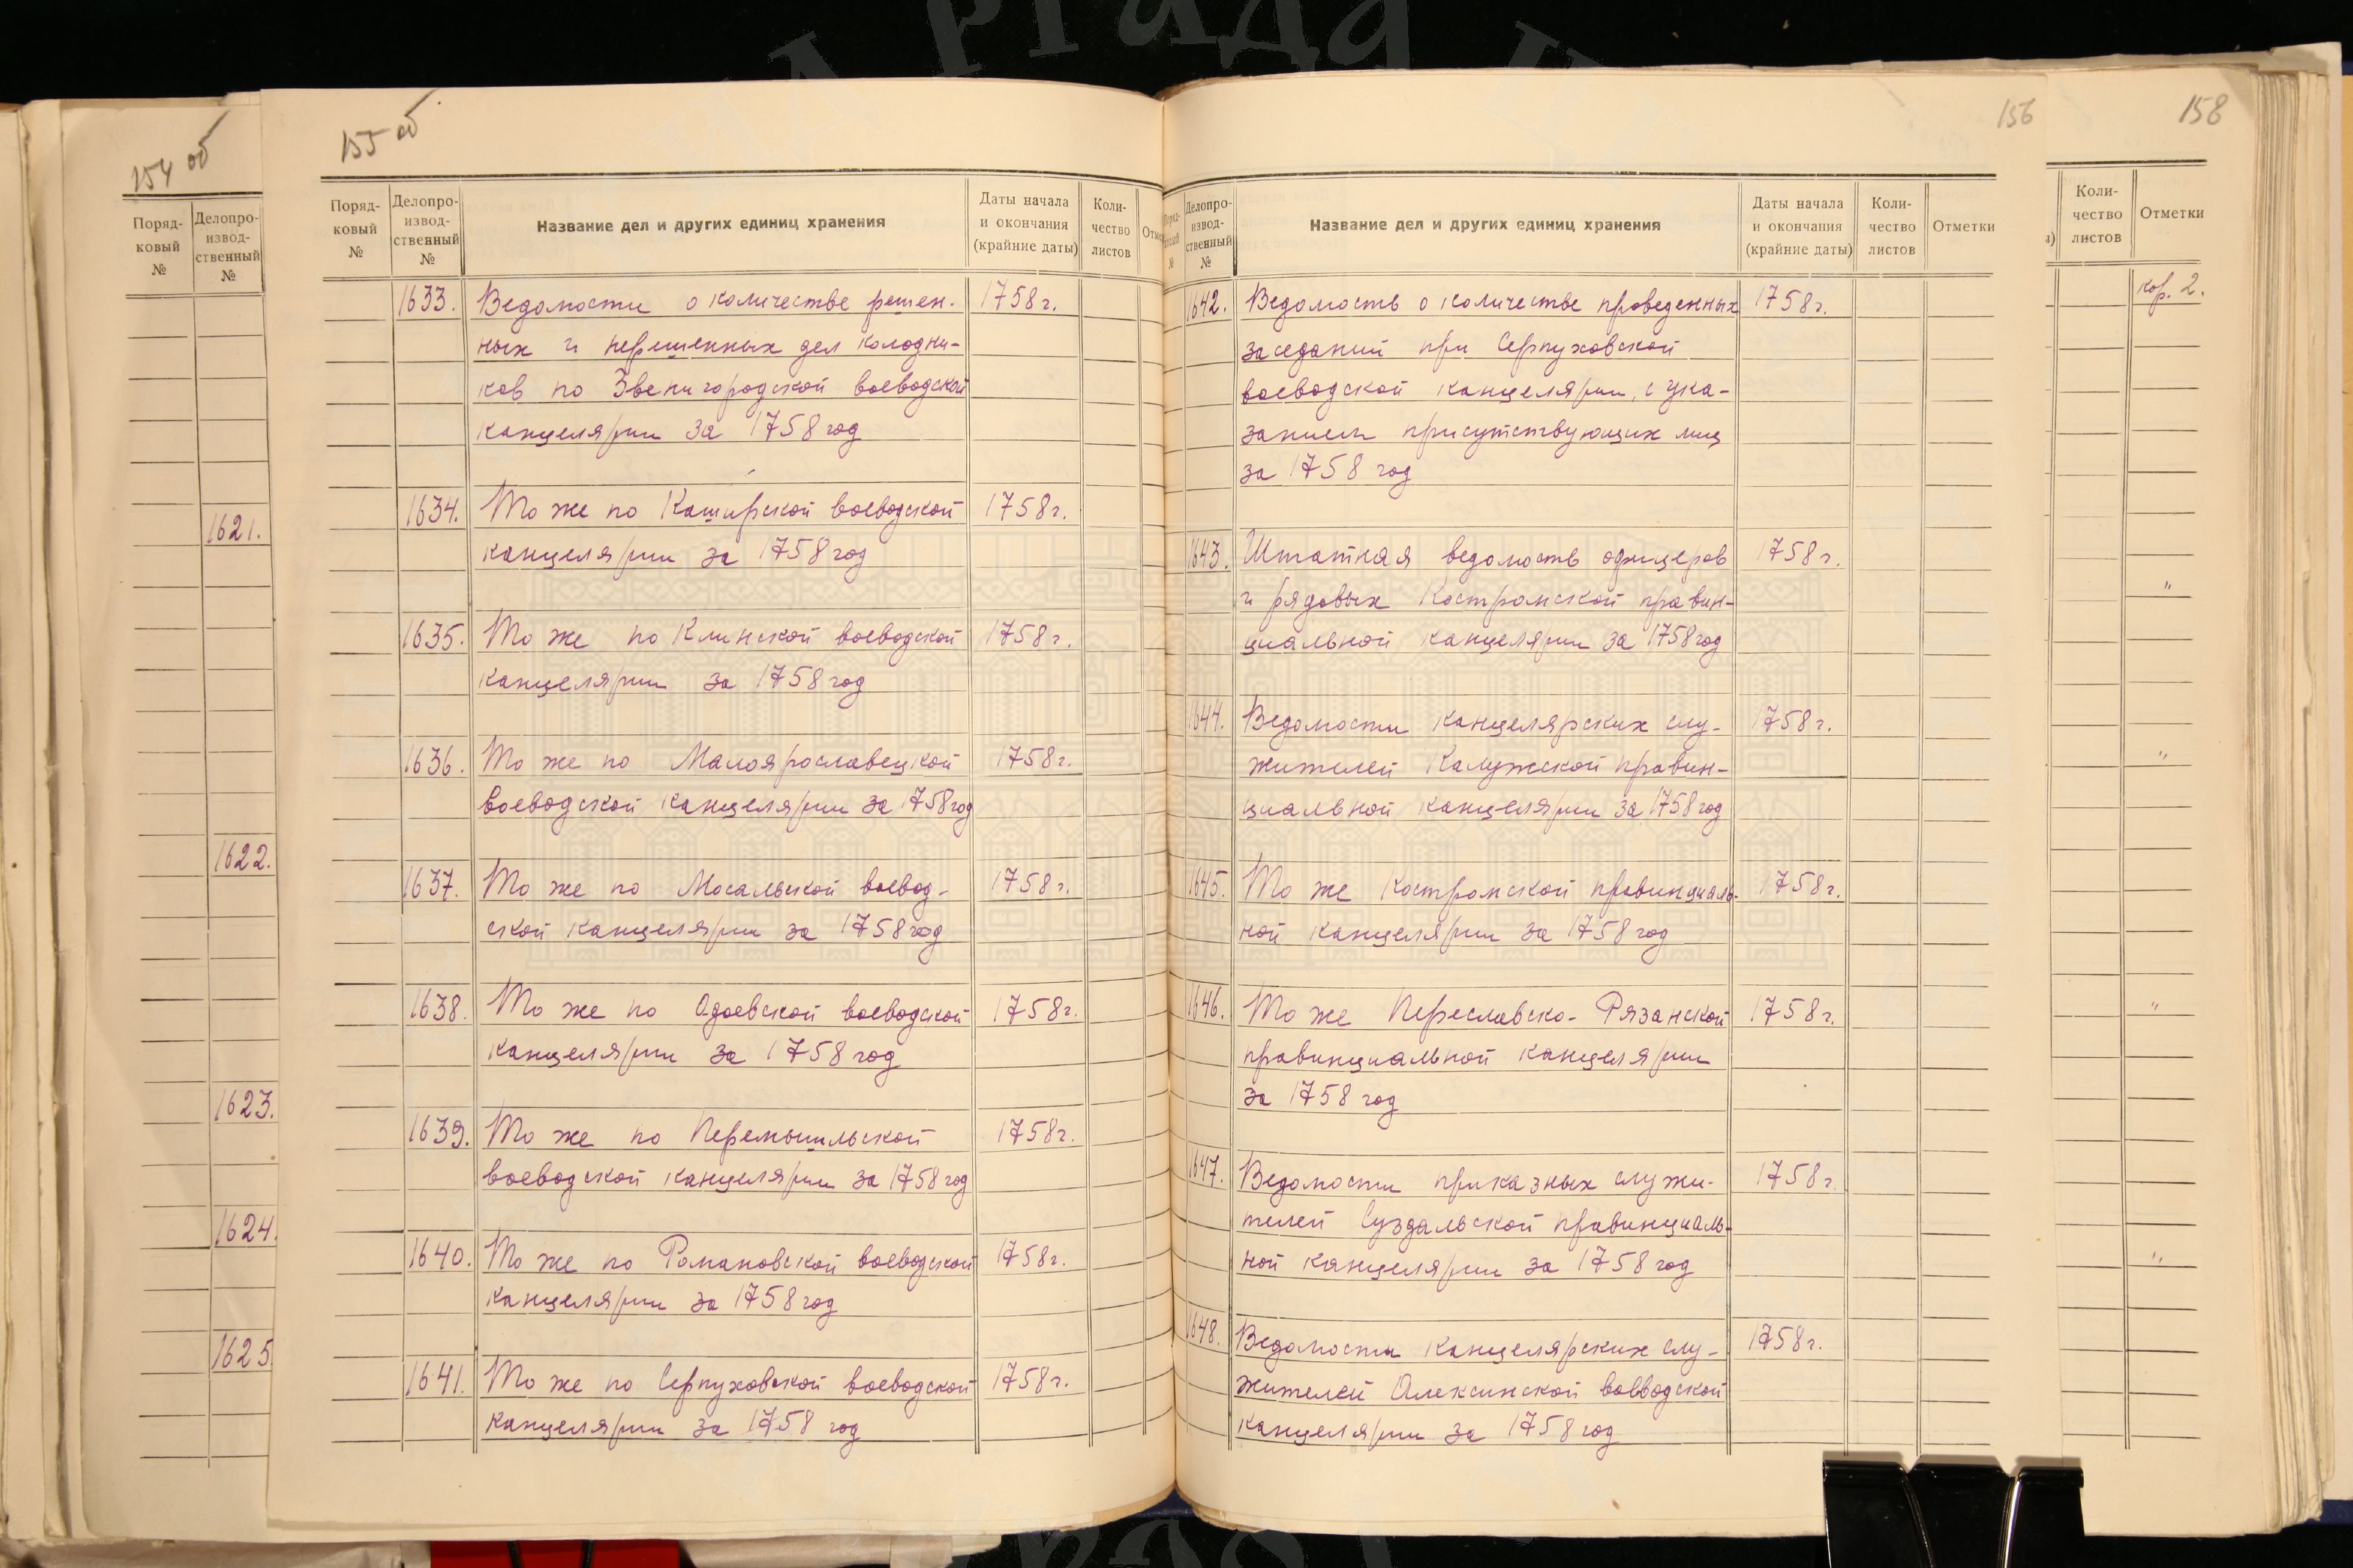 154 об
Поряд-
ковый
№
Делопро-
извод-
ственный
№
1621.
1622.
1623.
1624.
1625.
155 об
Поряд-
ковый
№
Делопро-
извод-
ственный
№
Название дел и других единиц хранения
Даты начала
и окончания
(крайние даты)
Коли-
чество
листов
1633. Ведомости о количестве решен- 1758 г.
ных и нерешенных дел колодни-
ков по Звенигородской воеводской
канцелярии за 1758 год
1634. То же по Каширской воеводской 1758 г.
канцелярии за 1758 год
1635. То же по Клинской воеводской 1758 г.
канцелярии за 1758 год
1636. То же по Малоярославецкой 1758 г.
воеводской канцелярии за 1758 год
1637. То же по Мосальской воевод- 1758 г.
ской канцелярии за 1758 год
1638. То же по Одоевской воеводской 1758 г.
канцелярии за 1758 год
1639. То же по Перемышльской 1758 г.
воеводской канцелярии за 1758 год
1640. То же по Романовской воеводской 1758 г.
канцелярии за 1758 год
1641. То же по Серпуховской воеводской 1758 г.
канцелярии за 1758 год
156
Делопро-
извод-
ственный
№
Название дел и других единиц хранения
Даты начала
и окончания
(крайние даты)
Коли-
чество
листов
Отметки
1642. Ведомость о количестве проведенных 1758 г.
заседаний при Серпуховской
воеводской канцелярии, с ука-
занием присутствующих лиц
за 1758 год
1643. Штатная ведомость офицеров 1758 г.
и рядовых Костромской провин-
циальной канцелярии за 1758 год
1644. Ведомости канцелярских слу- 1758 г.
жителей Калужской провин-
циальной канцелярии за 1758 год
1645. То же Костромской провинциаль- 1758 г.
ной канцелярии за 1758 год
1646. То же Переславско-Рязанской 1758 г.
провинциальной канцелярии
за 1758 год
1647. Ведомости приказных служи- 1758 г.
телей Суздальской провинциаль-
ной канцелярии за 1758 год
1648. Ведомости канцелярских слу- 1758 г.
жителей Алексинской воеводской
канцелярии за 1758 год
158
Коли-
чество
листов
Отметки
кор. 2.
"
"
"
"